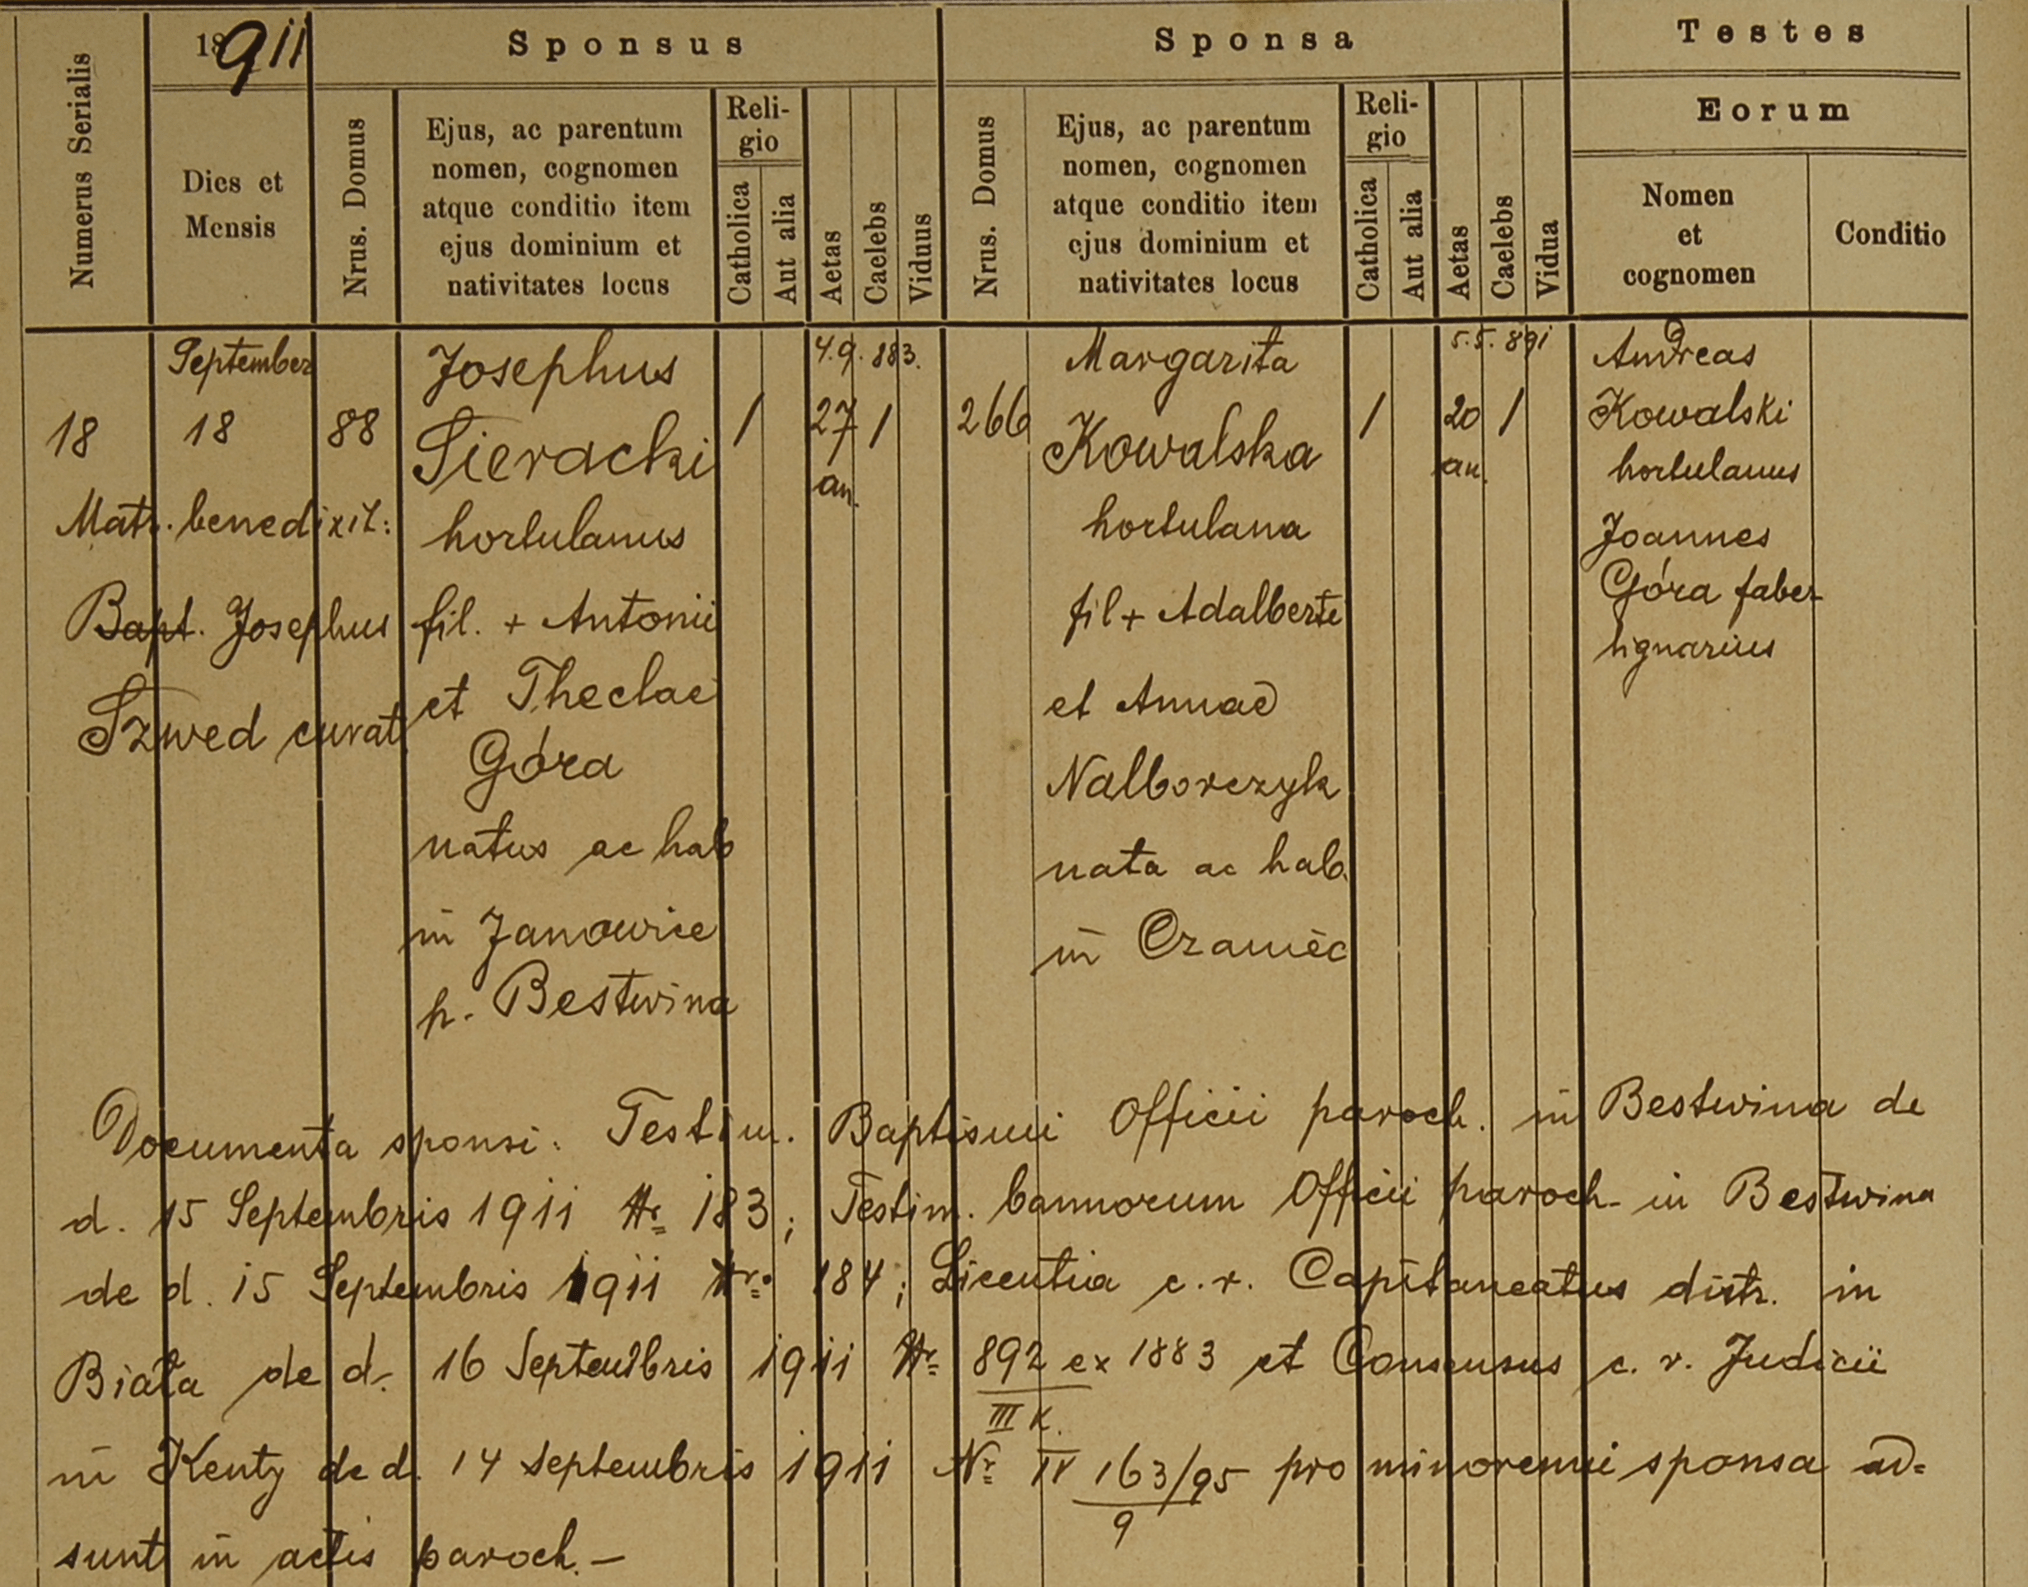 Numerus Serialis
1911
Dies et
Mensis
Sponsus
Nrus. Domus
Ejus, ac parentum
nomen, cognomen
atque conditio item
ejus dominium et
nativitates locus
Reli-
gio
Catholica
Aut alia
Aetas
Caelebs
Viduus
Sponsa
Nrus. Domus
Ejus, ac parentum
nomen, cognomen
atque conditio item
ejus dominium et
nativitates locus
Reli-
gio
Catholica
Aut alia
Aetas
Caelebs
Vidua
Testes
Eorum
Nomen
et
cognomen
Conditio
18
September
18
Matr. benedixit:
Bapt. Josephus
Szwed curat.
88
Josephus
Sieracki
hortulanus
fil. + Antonii
et Theclae
Góra
natus ac hab
in Janowice
p. Bestwina
/
4.9.883.
27
an.
/
266
Margarita
Kowalska
hortulana
fil + Adalberti
et Annae
Nalborczyk
nata ac hab.
in Czaniec
/
5.5.891
20
an.
/
Andreas
Kowalski
hortulanus
Joannes
Góra faber
lignarius
Documenta sponsi: Testim. Baptismi Officii paroch. in Bestwina de
d. 15 Septembris 1911 Nr 183; Testim. bannorum Officii paroch. in Bestwina
de d. 15 Septembris 1911 Nr. 184; Licentia c. r. Capitaneatus distr. in
Biała de d. 16 Septembris 1911 Nr 892 ex 1883 et Consensus c. r. Judicii
III K.
in Kenty de d. 14 Septembris 1911 Nr IV 163/95 pro minorenni sponsa ad=
9
sunt in actis paroch. —